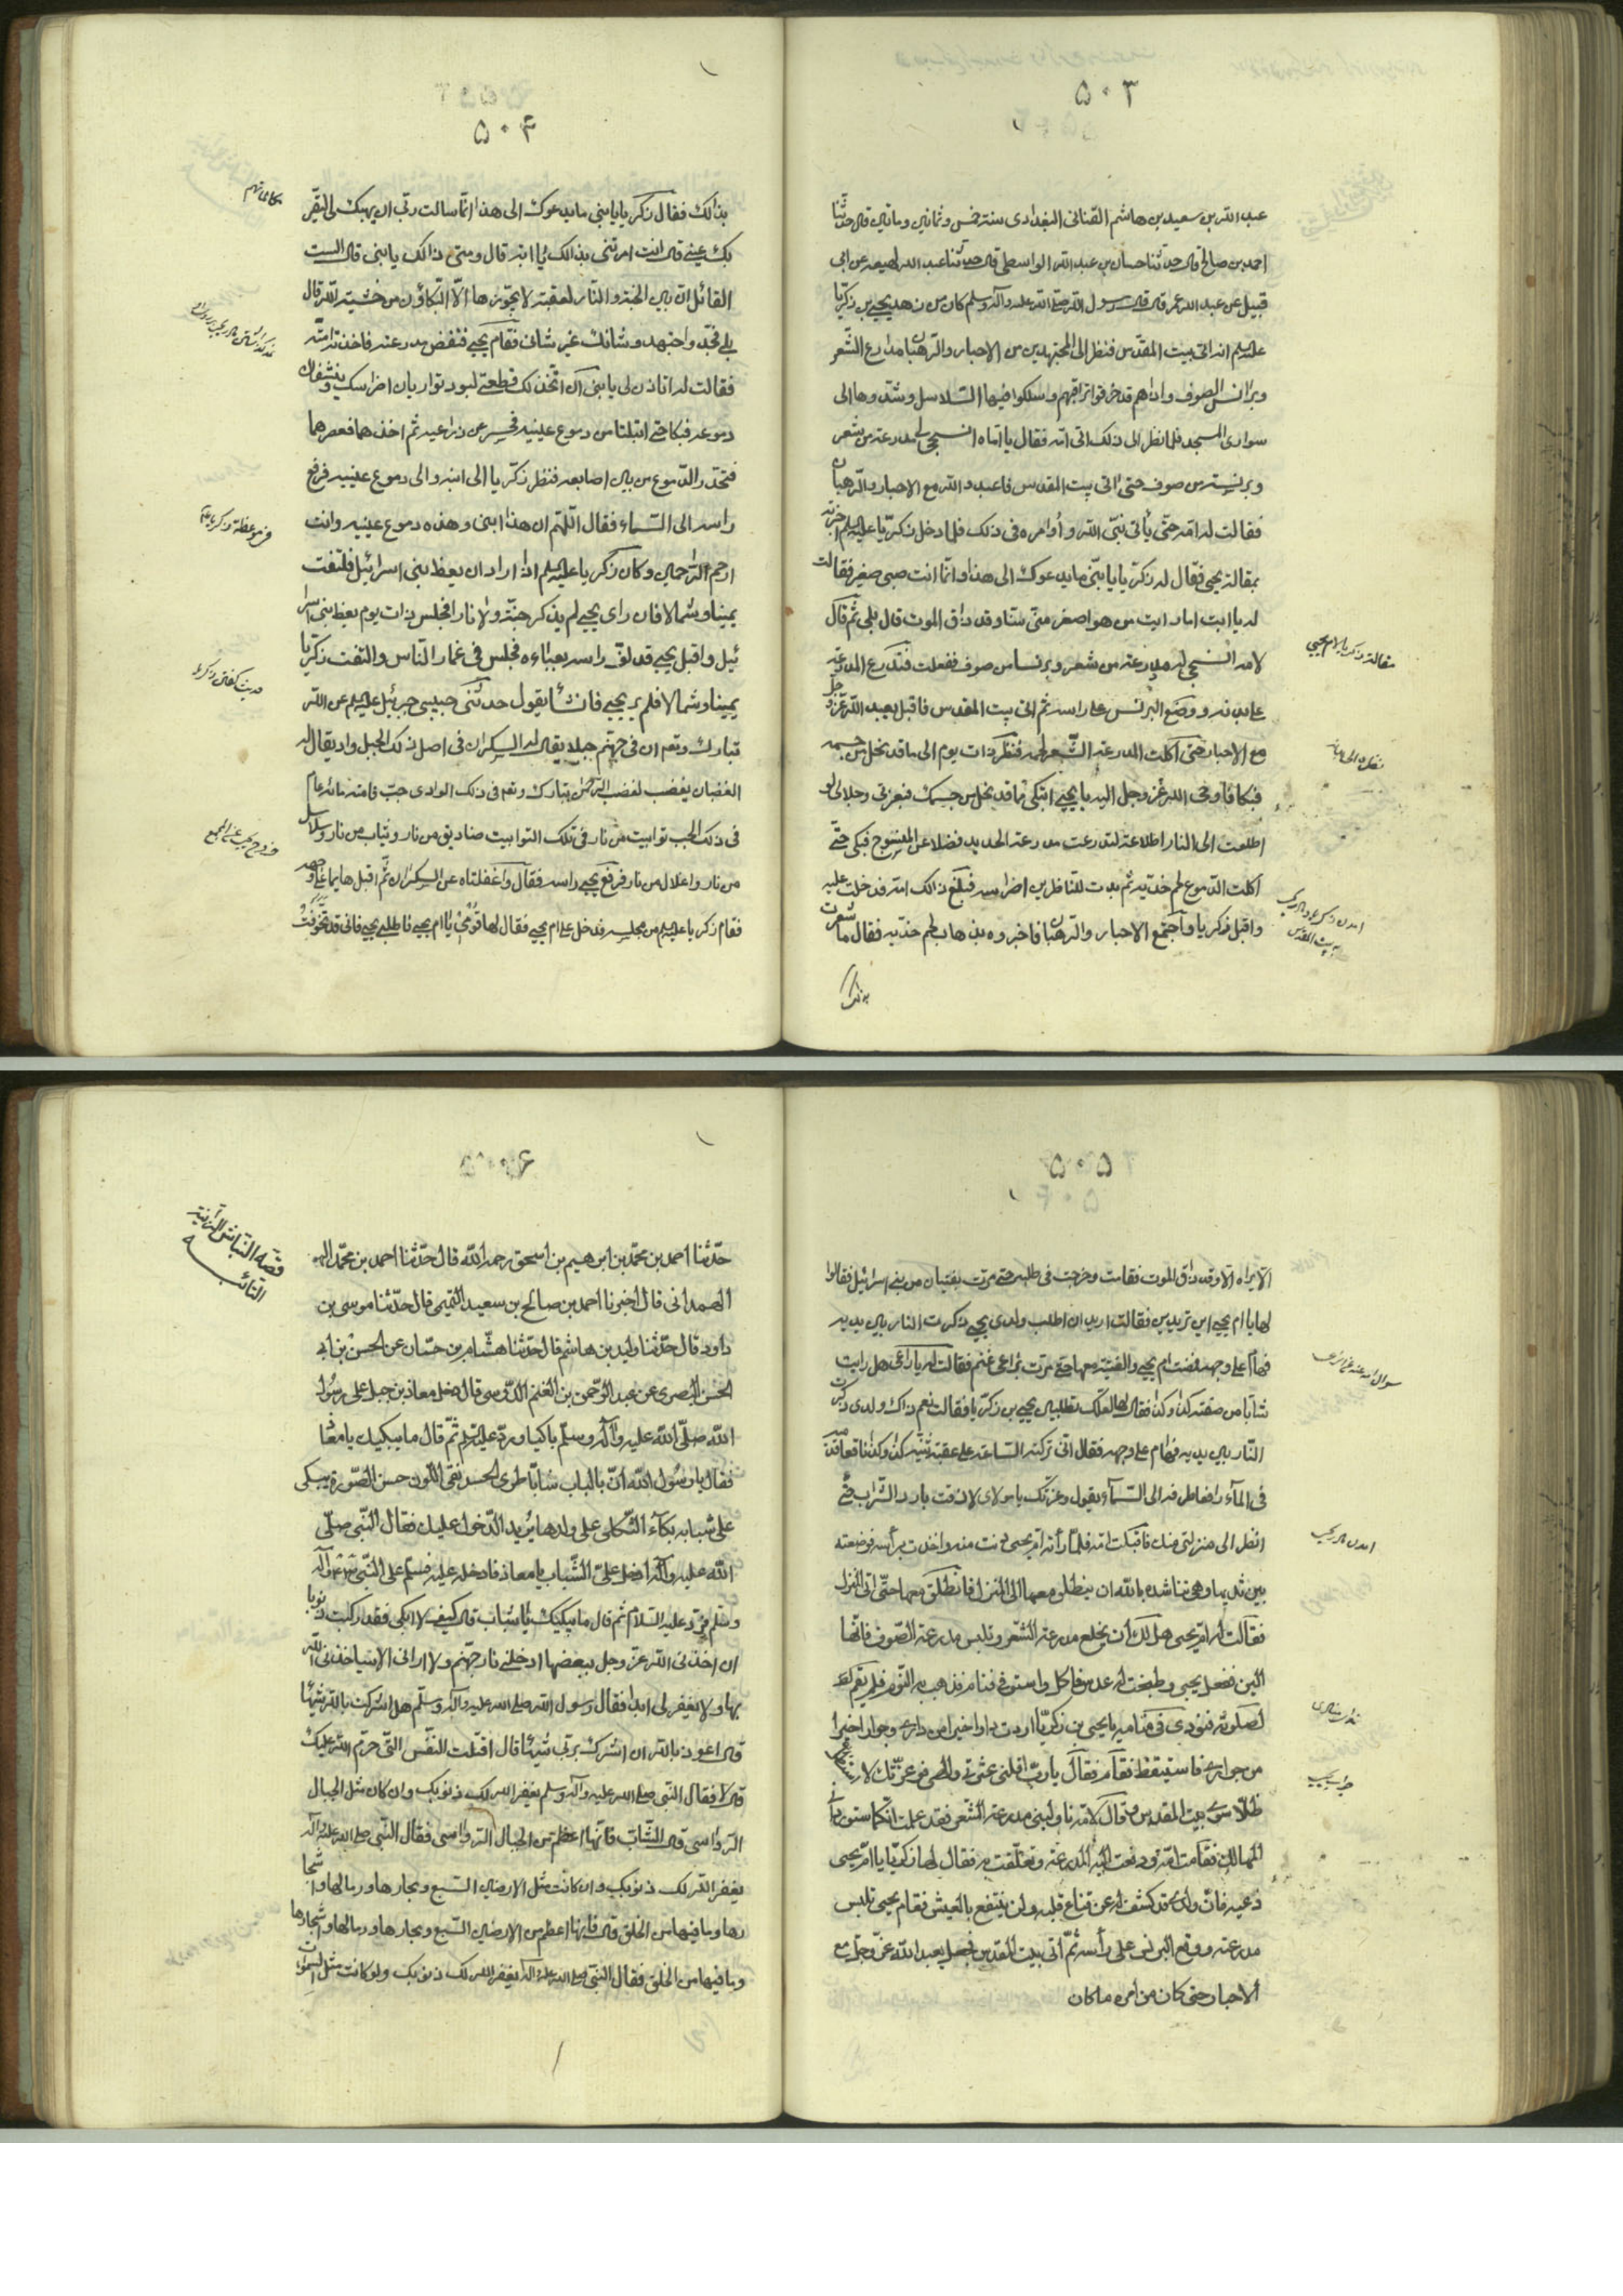 ۵۰۳
عبد الله بن سعيد بن هاشم القناني البغدادى سنة خمس وثمانين ومأتين قال حدثنا
احمد بن صالح قال حدثنا حسان بن عبد الله الواسطى قال حدثنا عبد الله لهيعه عن ابى
قبيل عن عبد الله عمر قال قال رسول الله صلى الله عليه وآله وسلم كان من زهد يحيى بن زكريا
عليه السلم انه اتى بيت المقدس فنظر الى المجتهدين من الاحبار والرهبان مدارع الشعر
وبرانس الصوف واذاهم قد خرقوا تراقيهم وسلكوا فيها السلاسل وشدوها الى
سوارى المسجد فلما نظر الى ذلك اتى امه فقال يا اماه انسجى لى مدرعة من شعر
وبرنس من صوف حتى اتى بيت المقدس فاعبد الله مع الاحبار والرهبان
فقالت له امه حتى يأتى نبى الله وأوامره فى ذلك فلما دخل زكريا عليه السلم اخبرته
بمقالة يحيى فقال له زكريا يا بنى ما يدعوك الى هذا وانما انت صبى صغير فقال
له يا ابت اما رايت من هو اصغر منى سنا وقد ذاق الموت قال بلى ثم قال
لامه انسجى له مدرعة من شعر وبرنسا من صوف ففعلت فتدرع المدرعة
على بدنه ووضع البرنس على راسه ثم اتى بيت المقدس فاقبل يعبد الله عز وجل
مع الاحبار حتى اكلت المدرعة الشعر لحمه فنظر ذات يوم الى ما قد نحل من جسمه
فبكا فاوحى الله عز وجل اليه يا يحيى اتبكى مما قد نحل من جسمك فبعزتى وجلالى لو
اطلعت الى النار اطلاعة لتدرعت مدرعة الحديد فضلا عن المنسوج فبكى حتى
اكلت الدموع لحم خديه ثم بدت للناظرين اضراسه فبلغ ذالك امه فدخلت عليه
واقبل زكريا واجتمع الاحبار والرهبان فاخبروه بذهاب لحم خديه فقال ما شعرت
بذلك
مقالة زكريا لام يحيى
۵۰۴
بذالك فقال زكريا يا بنى ما يدعوك الى هذا انما سالت ربى ان يهبك لى لتقر
بك عينى قال انت امرتنى بذالك يا ابه قال ومتى ذالك يا بنى قال الست
القائل ان بين الجنة والنار لعقبة لا يجوزها الا البكاؤن من خشية الله قال
بلى فجد واجتهد وشانك غير شانى فقام يحيى فنفض مدرعته فاخذته امه
فقالت له اتاذن لى يا بنى ان اتخذ لك قطعتى لبود تواريان اضراسك وينشفان
دموعه فبكا حتى ابتلتا من دموع عينيه فحسر عن ذراعيه ثم اخذهما فعصرهما
فتحدر الدموع من بين اصابعه فنظر زكريا الى ابنه والى دموع عينيه فرفع
راسه الى السماء فقال اللهم ان هذا ابنى وهذه دموع عينيه وانت
ارحم الراحمين وكان زكريا عليه السلم اذا اراد ان يعظ بنى اسرائيل فلتفت
يمينا وشمالا فان راى يحيى لم يذكر جنة ولا نارا فجلس ذات يوم يعظ بنى اسرا
ئيل واقبل يحيى قد لف راسه بعبائه فجلس فى غمار الناس والتفت زكريا
يمينا وشمالا فلم ير يحيى فانشا يقول حدثنى حبيبى جبرئيل عليه السلم عن الله
تبارك وتعم ان فى جهنم جبلا يقال له السكران فى اصل ذلك الجبل واد يقال له
الغضبان يغضب لغضب الرحمن تبارك وتعم فى ذلك الوادى جب قامته مائة عام
فى ذلك الجب توابيت من نار فى تلك التوابيت صناديق من نار وثياب من نار وسلاسل
من نار واغلال من نار فرفع يحيى راسه فقال واغفلتاه عن السكران ثم اقبل هايما على وجهه
فقام زكريا عليه السلم من مجلسه فدخل على ام يحيى فقال لها قومى يا ام يحيى فاطلبى يحيى فانى قد تخوفت
۵۰۵
الا نراه الا وقد ذاق الموت فقامت وخرجت فى طلبه حتى مرت بفتيان من بنى اسرائيل فقالوا
لها يا ام يحيى اين تريدين فقالت اريد ان اطلب ولدى يحيى ذكرت النار بين يديه
فهام على وجهه فمضت ام يحيى والفتية معها حتى مرت براعى غنم فقالت له يا راعى هل رايت
شابا من صفته كذا وكذا فقال لها لعلك تطلبين يحيى بن زكريا فقالت نعم ذاك ولدى ذكرت
النار بين يديه فهام على وجهه فقال انى تركته الساعة على عقبة ثنية كذا وكذا ناقعا قدميه
فى الماء رافعا طرفه الى السماء يقول وعزتك يا مولاى لا ذقت بارد الشراب حتى
انظر الى منزلتى منك فاقبلت امه فلما رأته ام يحيى دنت منه واخذت برأسه فوضعته
بين ثدييها وهى تناشده بالله ان ينطلق معها الى المنزل فانطلق معها حتى اتى المنزل
فقالت له ام يحيى هل لك أن يخلع مدرعة الشعر وتلبس مدرعة الصوف فانها
الين ففعل يحيى وطبخت له عدس فاكل واستوفى فنام فذهب به النوم فلم يقم
لصلوته فنودى فى منامه يا يحيى بن زكريا اردت دارا خيرا من دارى وجوارا خيرا
من جوارى فاستيقظ فقام فقال يا رب اقلنى عثرتى الهى فوعزتك لا استظل
بظل سوى بيت المقدس وقال لامه ناولينى مدرعة الشعر فقد علمت انكما ستوردانى
المهالك فقامت امه ودفعت اليه المدرعة وتعلقت به فقال لها زكريا يا ام يحيى
دعيه فان ولدى قد كشف له عن قناع قلبه ولن ينتفع بالعيش فقام يحيى فلبس
مدرعته ووضع البرنس على رأسه ثم أتى بيت المقدس فجعل يعبد الله عز وجل مع
ألاحبار حتى كان من امره ما كان
۵۰۶
قصة النباش
التائب
حدثنا احمد بن محمد بن ابرهيم بن اسحق رحمه الله قال حدثنا احمد بن محمد
الهمدانى قال اخبرنا احمد بن صالح بن سعيد التميمى قال حدثنا موسى بن
داود قال حدثنا وليد بن هاشم قال حدثنا هشام بن حسان عن الحسن بن ابى
الحسن البصرى عن عبد الرحمن بن الغنم الدوسى قال دخل معاذ بن جبل على رسول
الله صلى الله عليه وآله وسلم باكيا ورد عليه السلم ثم قال ما يبكيك يا معاذ
فقال يا رسول الله ان بالباب شابا طرى الجسد نقى اللون حسن الصورة يبكى
على شبابه بكاء الثكلى على ولدها يريد الدخول عليك فقال النبى صلى
الله عليه وآله ادخل على الشباب يا معاذ فادخله عليه فسلم على النبى وآله
وسلم فرد عليه السلام ثم قال ما يبكيك يا شاب قال كيف لا ابكى فقد ركبت ذنوبا
ان اخذنى الله عز وجل ببعضها ادخلنى نار جهنم ولا ارانى الا سياخذنى الله
بها ولا يغفر لى ابدا فقال رسول الله صلى الله عليه وآله وسلم هل اشركت بالله شيئا
قال اعوذ بالله ان اشرك بربى شيئا قال اقتلت النفس التى حرم الله عليك
قال لا فقال النبى صلى الله عليه وآله وسلم يغفر الله لك ذنوبك وان كان مثل الجبال
الرواسى قال الشاب فانها اعظم من الجبال الرواسى فقال النبى صلى الله عليه وآله
يغفر الله لك ذنوبك وان كانت مثل الارضين السبع وبحارها ورمالها واشجا
رها وما فيها من الخلق قال فانها اعظم من الارضين السبع وبحارها ورمالها واشجارها
وما فيها من الخلق فقال النبى صلى الله عليه وآله يغفر الله لك ذنوبك ولو كانت مثل السموات